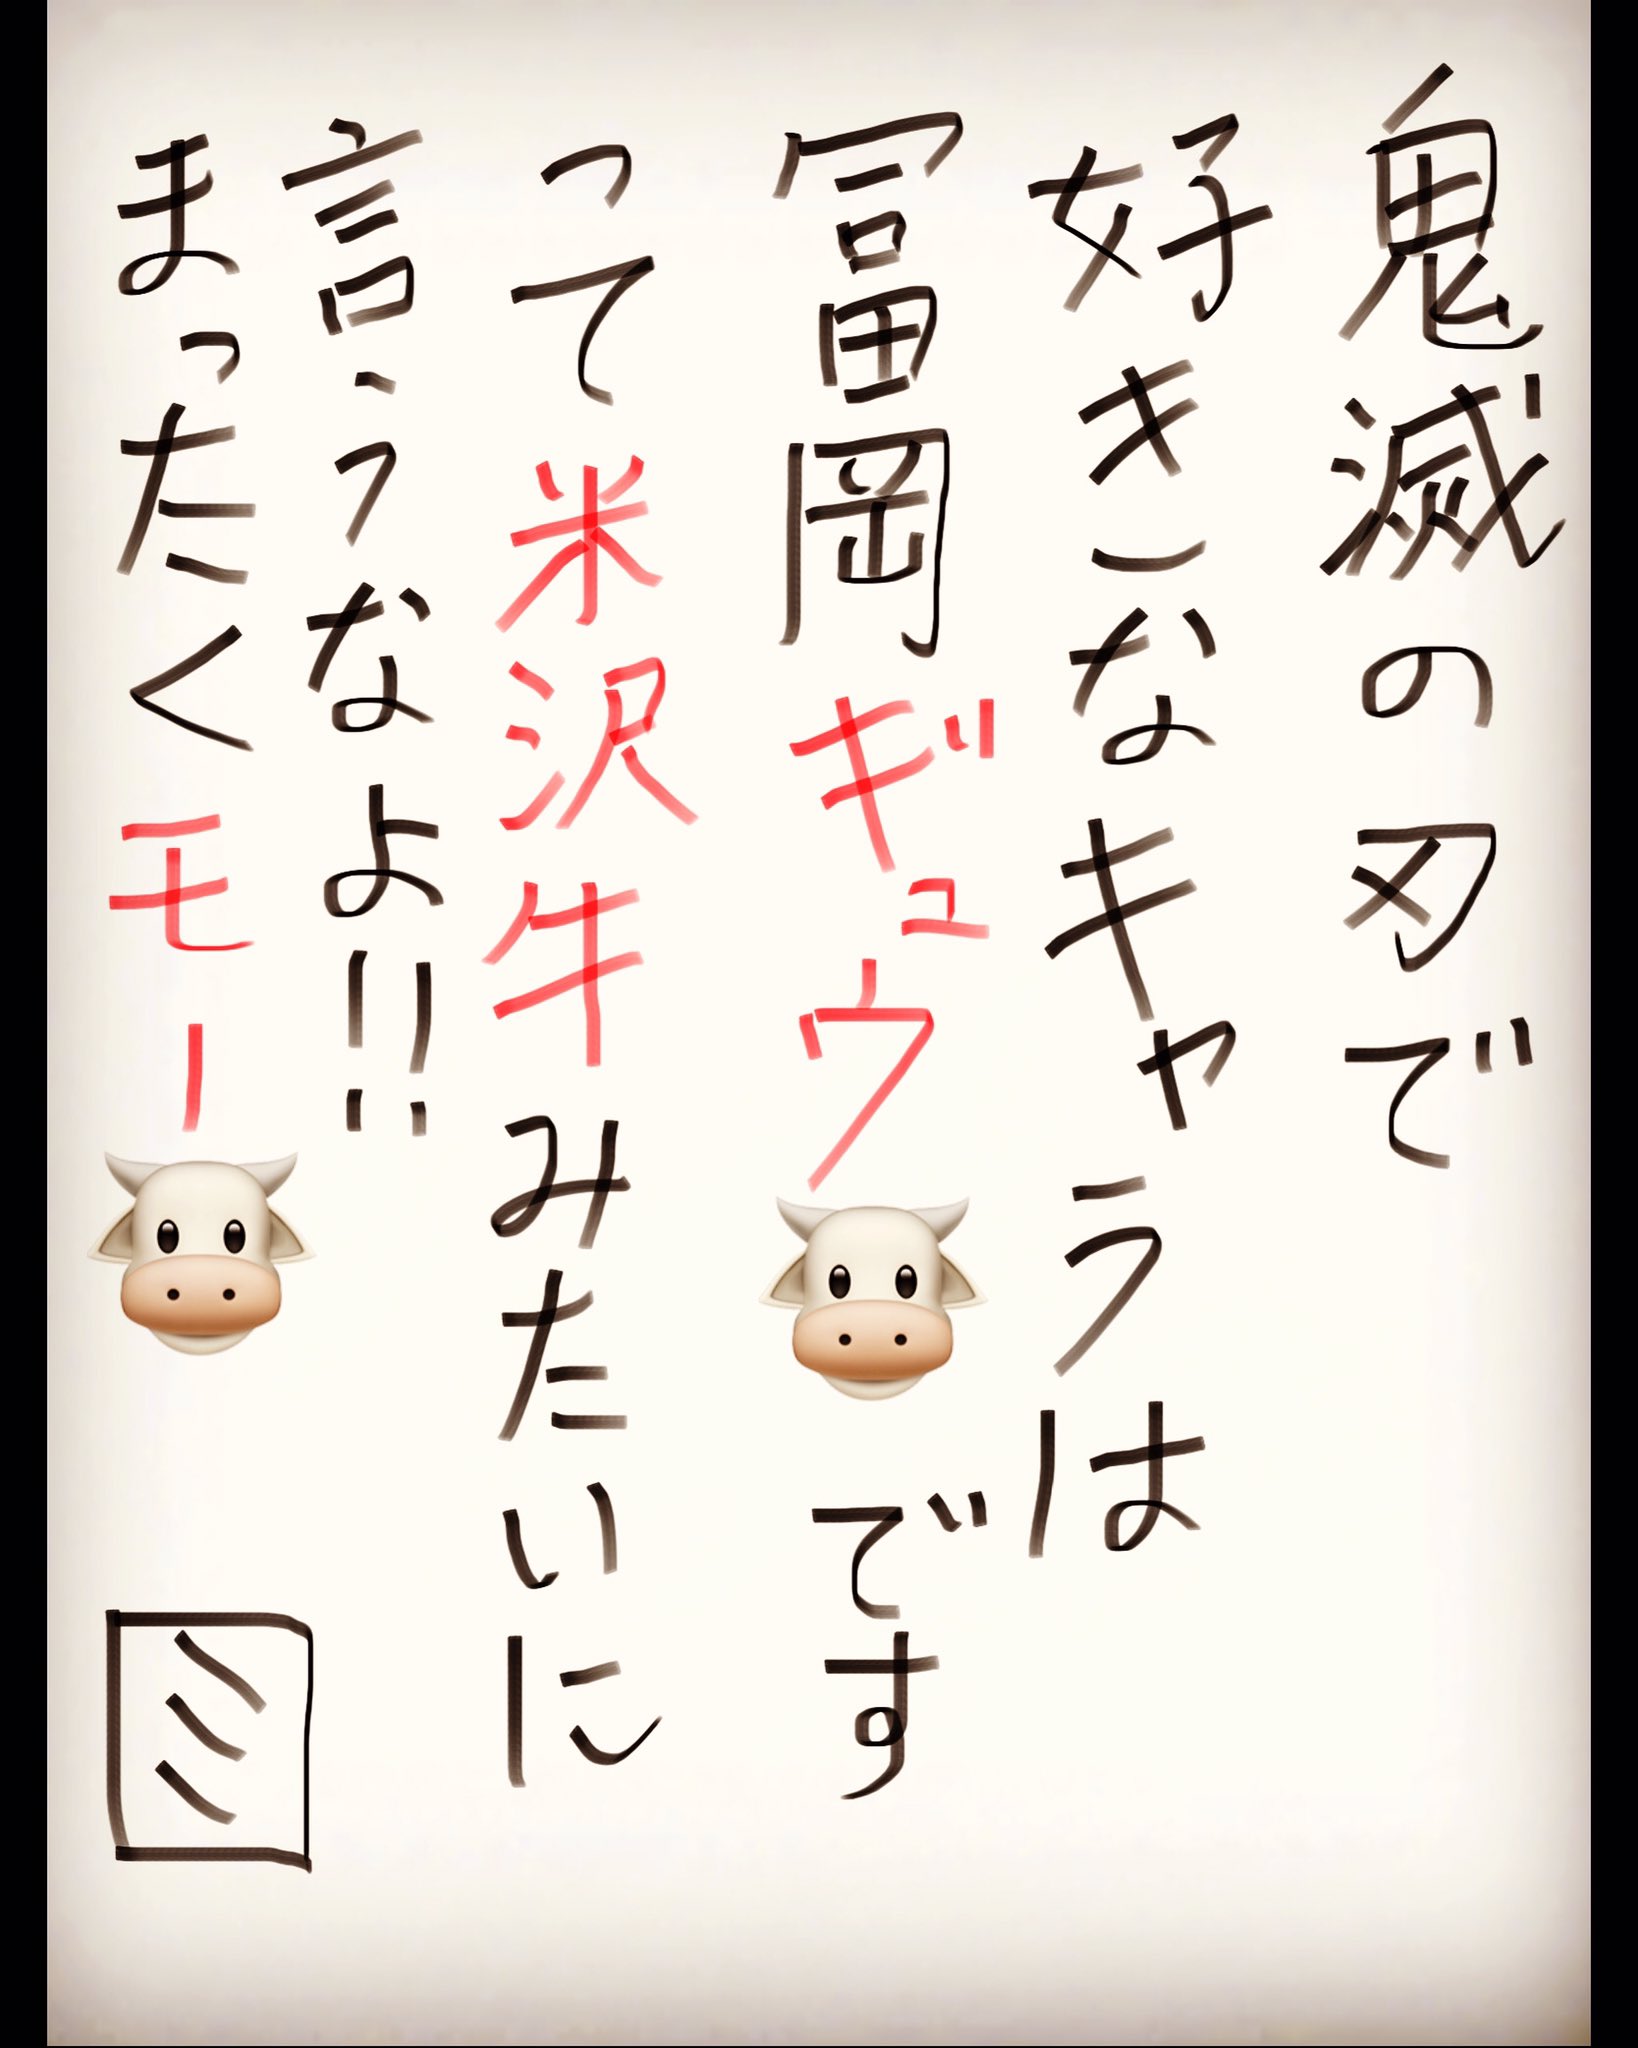 鬼滅の刃で
好きなキャラは
冨岡ギュウ🐮です
って米沢牛みたいに
言うなよ!!
まったくモー🐮
ミ